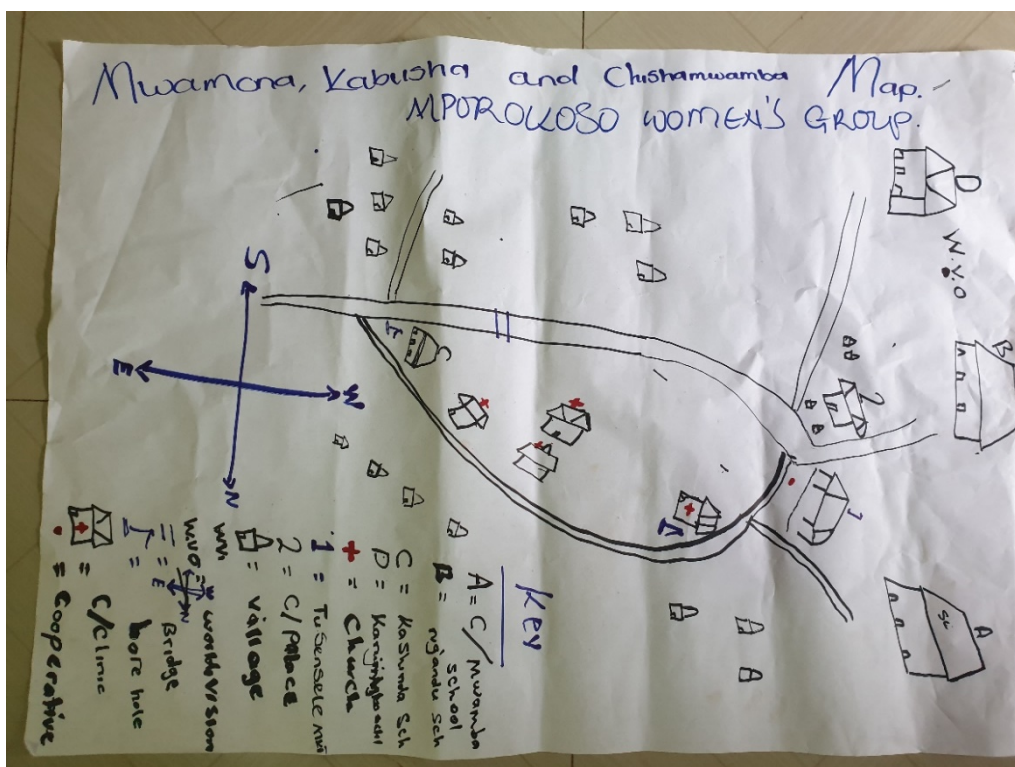 Mwamona, Kabusha and Chishamwamba Map.
MPOROKOSO WOMEN'S GROUP.
D
W.V.O
B
2
1
A
Sc
C
S
E
W
N
Key
A = C/Mwamba
school
B = ngandu Sch
C = Kashinda Sch
D =
+ = Church
1 =
2 = C/Palace
= village
WVO = world vision
W
N
E
= Bridge
= bore hole
= C/Clinic
= Cooperative